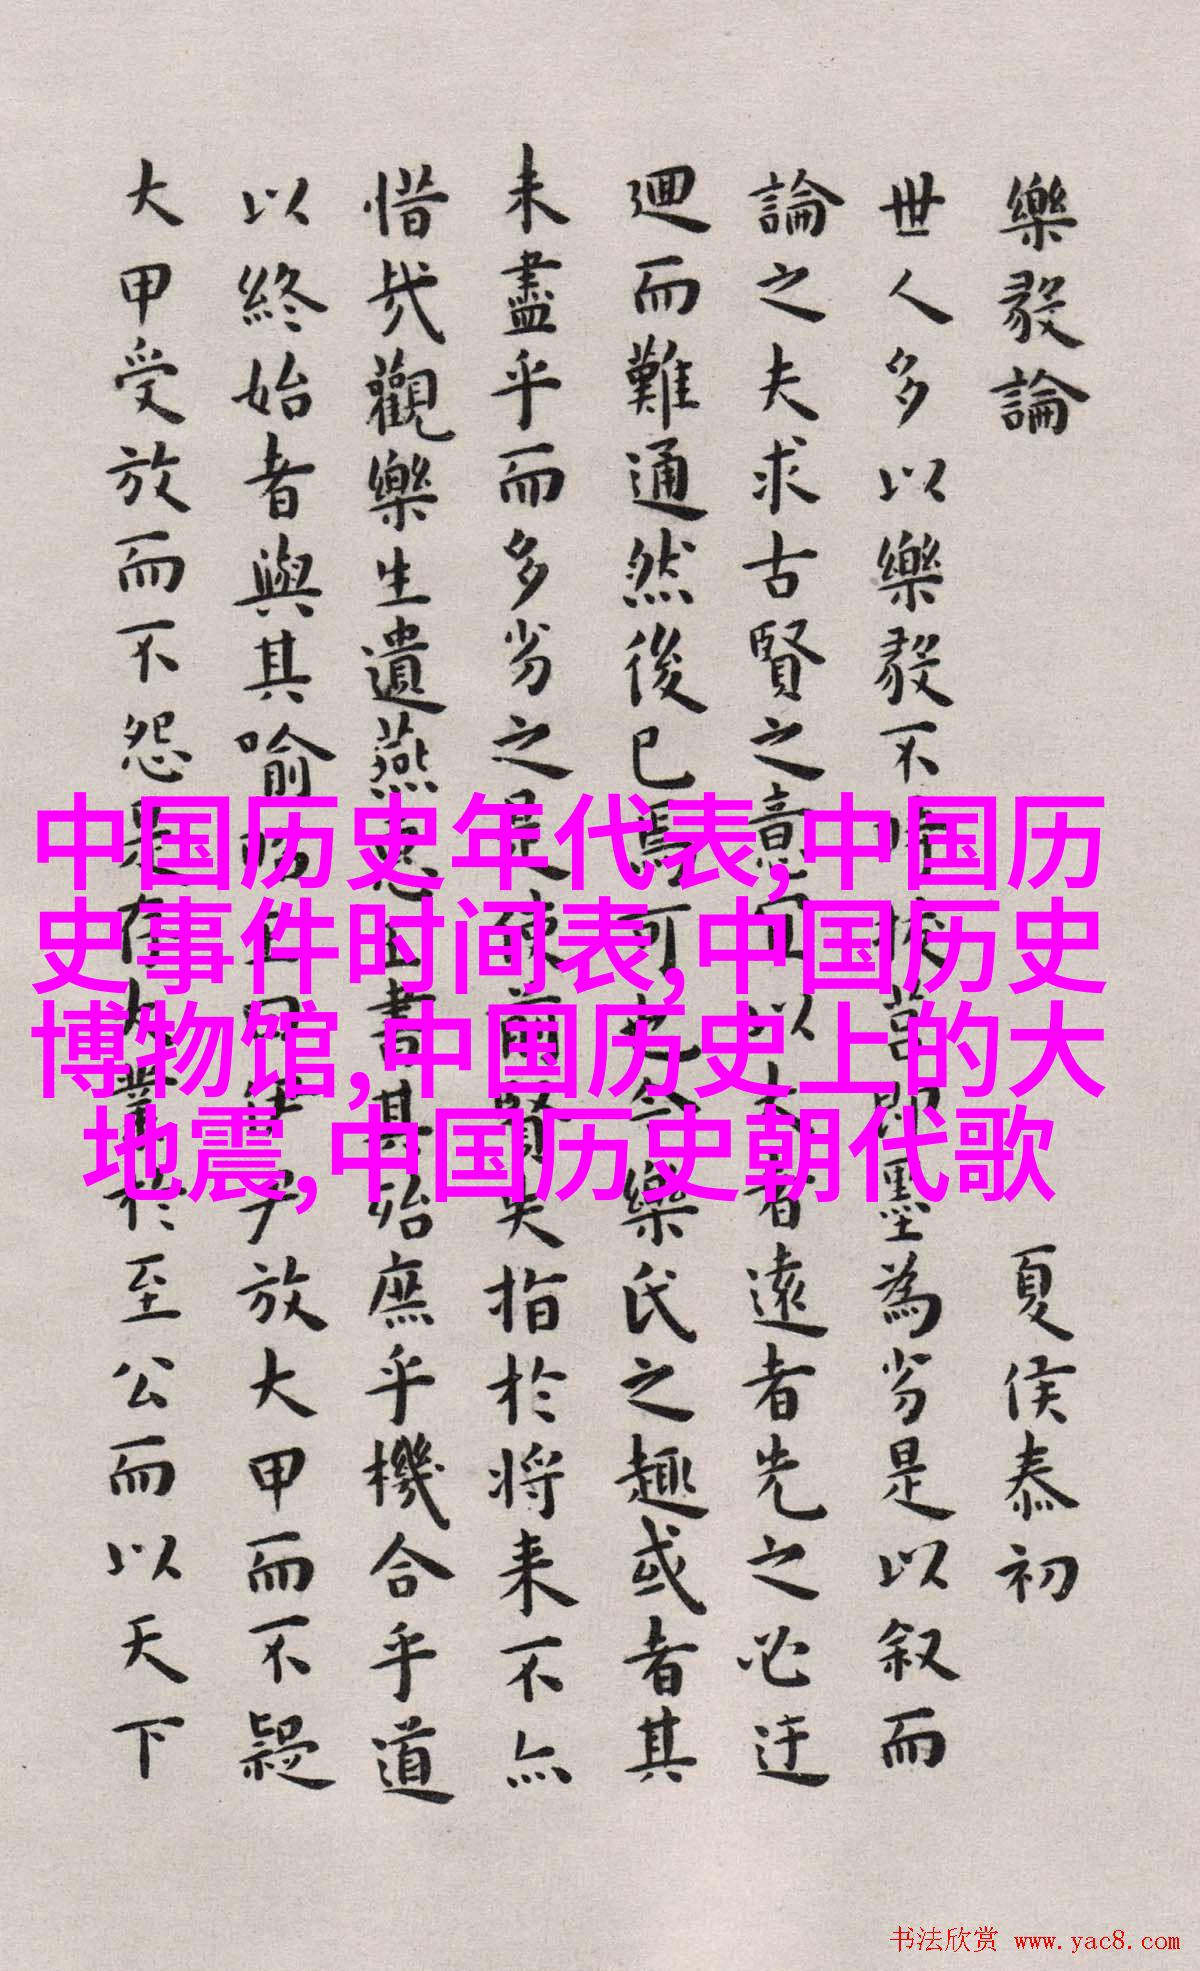 樂毅論 夏侯泰初
世人多以樂毅不時拔莒即墨為劣是以叙而
論之夫求古賢之意宜以大者遠者先之必迂
迴而難通然後已焉可也今樂氏之趣或者其
未盡乎而多劣之是使前賢失指於将来不亦
惜哉觀樂生遺燕惠王書其殆庶乎機合乎道
以終始者與其喻昭王曰伊尹放大甲而不疑
大甲受放而不怨是存大業於至公而以天下
中国历史年代表,中国历
史事件时间表,中国历史
博物馆,中国历史上的大
地震,中国历史朝代歌
书法欣赏 www.yac8.com